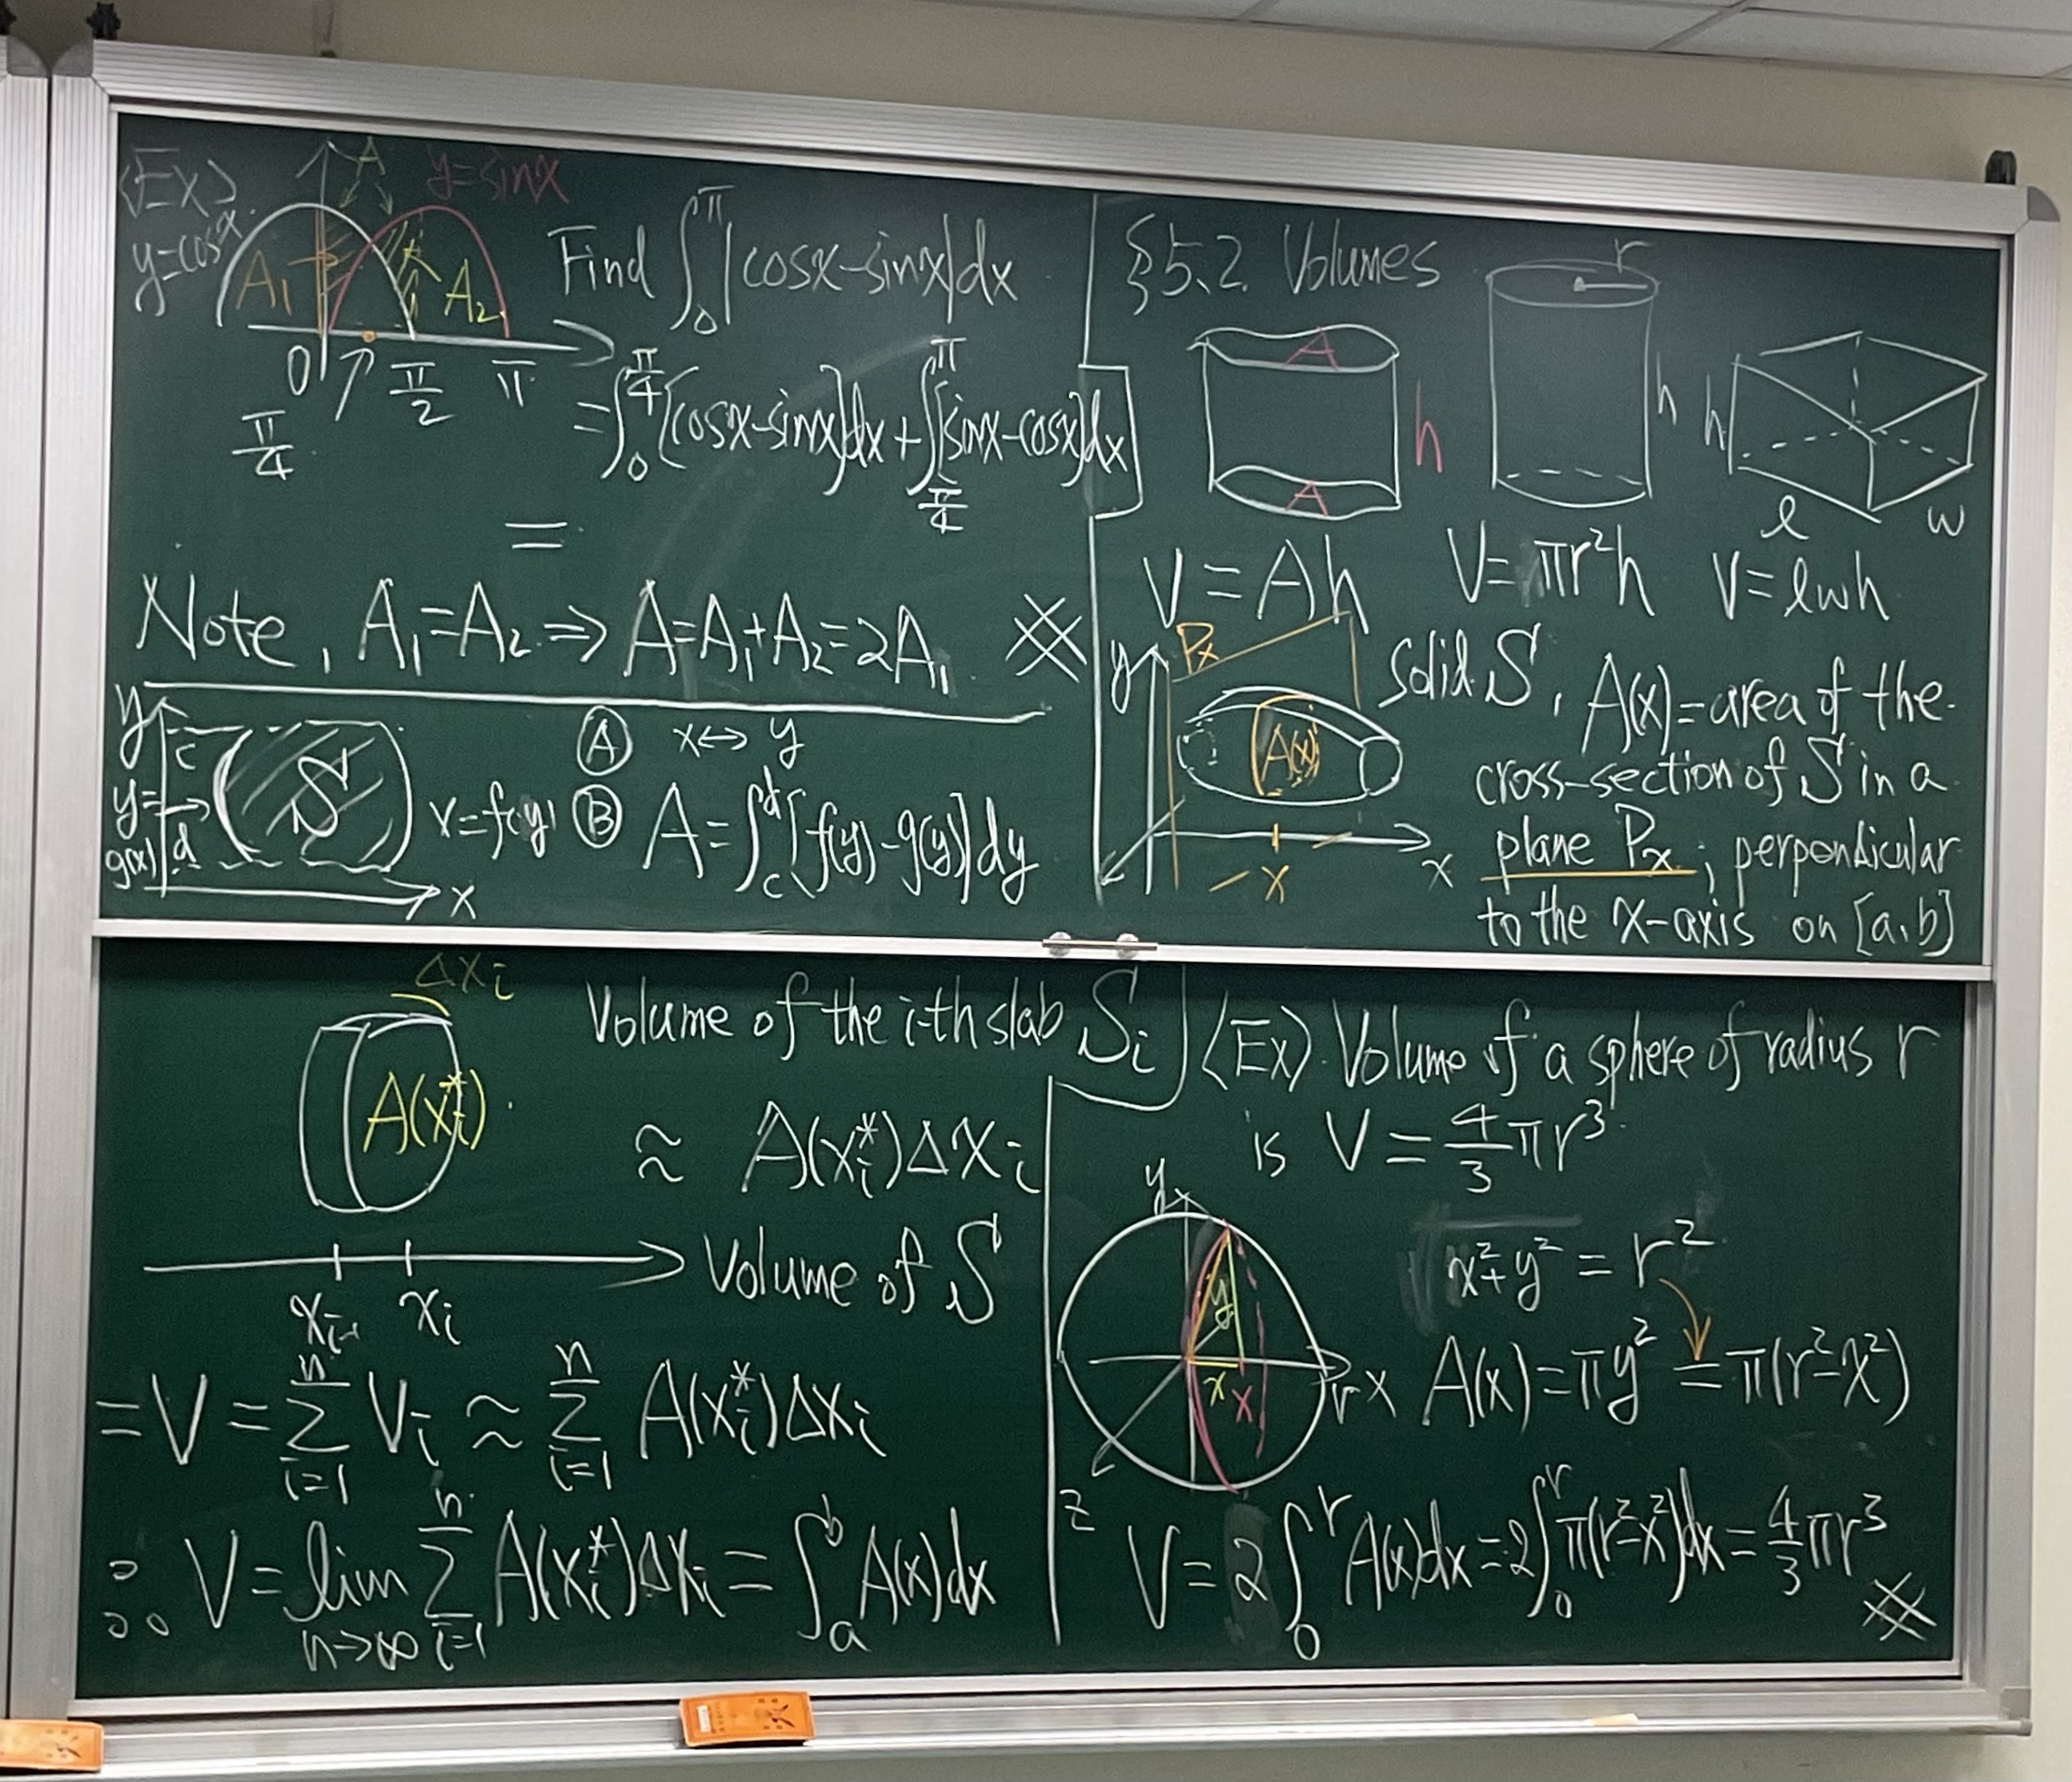 <Ex>
A
y=sinx
y=cosx
A₁
A₂
0
π/4
π/2
π
Find ∫₀^π |cosx-sinx|dx
= ∫₀^{π/4} [cosx-sinx]dx + ∫_{π/4}^π [sinx-cosx]dx
=
Note, A₁=A₂ ⇒ A=A₁+A₂=2A₁
y
c
y=
g(x)
d
S
x=f(y)
x
Ⓐ x↔y
Ⓑ A=∫_c^d [f(y)-g(y)]dy
§5.2. Volumes
A
A
h
r
h
h
l
w
V=Ah
V=πr²h
V=lwh
y
Pₓ
A(x)
x
x
solid S, A(x)=area of the
cross-section of S in a
plane Pₓ, perpendicular
to the x-axis on [a,b]
Δxᵢ
A(xᵢ*)
xᵢ₋₁
xᵢ
Volume of the i-th slab Sᵢ
≈ A(xᵢ*)Δxᵢ
Volume of S
=V=∑_{i=1}^n Vᵢ ≈ ∑_{i=1}^n A(xᵢ*)Δxᵢ
∴ V=lim_{n→∞} ∑_{i=1}^n A(xᵢ*)Δxᵢ = ∫_a^b A(x)dx
<Ex> Volume of a sphere of radius r
is V=4/3 πr³
y
y
x
x
r
x
z
x²+y²=r²
A(x)=πy²=π(r²-x²)
V=2∫₀^r A(x)dx=2∫₀^r π(r²-x²)dx=4/3 πr³